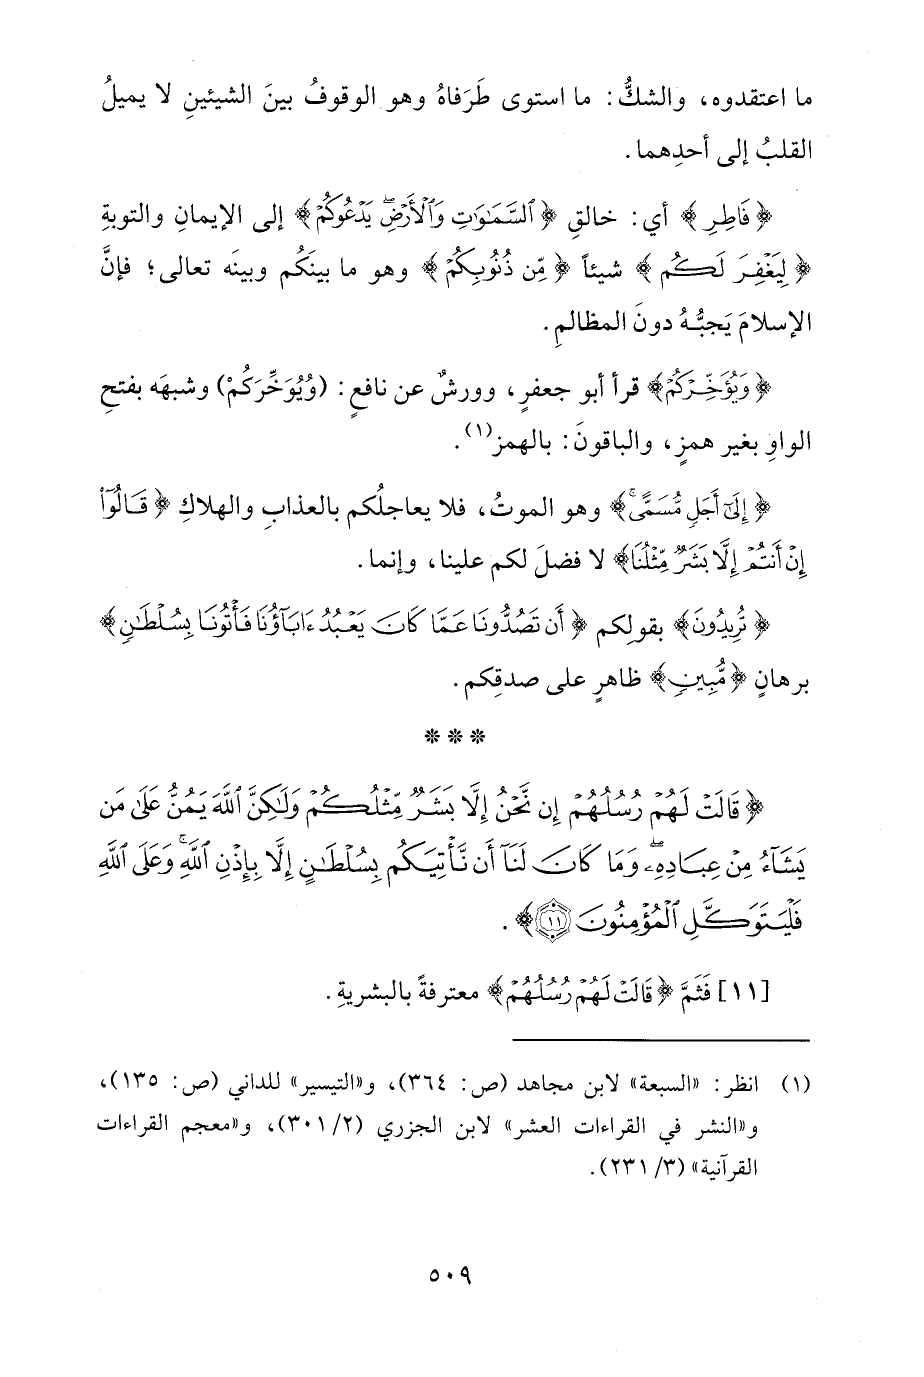 ما اعتقدوه، والشكُّ: ما استوى طَرَفاهُ وهو الوقوفُ بينَ الشيئينِ لا يميلُ
القلبُ إلى أحدِهما.
﴿فَاطِرِ﴾ أي: خالقِ ﴿ٱلسَّمَٰوَٰتِ وَٱلْأَرْضِۖ يَدْعُوكُمْ﴾ إلى الإيمانِ والتوبةِ
﴿لِيَغْفِرَ لَكُم﴾ شيئاً ﴿مِّن ذُنُوبِكُمْ﴾ وهو ما بينَكُم وبينَه تعالى؛ فإنَّ
الإسلامَ يَجبُّهُ دونَ المظالمِ.
﴿وَيُؤَخِّرَكُمْ﴾ قرأ أبو جعفرٍ، وورشٌ عن نافعٍ: (وَيُوَخِّرَكُمْ) وشبهَه بفتحِ
الواوِ بغير همزٍ، والباقونَ: بالهمز(١).
﴿إِلَىٰٓ أَجَلٍ مُّسَمًّىۚ﴾ وهو الموتُ، فلا يعاجلُكم بالعذابِ والهلاكِ ﴿قَالُوٓا۟
إِنْ أَنتُمْ إِلَّا بَشَرٌ مِّثْلُنَا﴾ لا فضلَ لكم علينا، وإنما.
﴿تُرِيدُونَ﴾ بقولِكم ﴿أَن تَصُدُّونَا عَمَّا كَانَ يَعْبُدُ ءَابَآؤُنَا فَأْتُونَا بِسُلْطَٰنٍ﴾
برهانٍ ﴿مُّبِينٍ﴾ ظاهرٍ على صدقِكم.
* * *
﴿قَالَتْ لَهُمْ رُسُلُهُمْ إِن نَّحْنُ إِلَّا بَشَرٌ مِّثْلُكُمْ وَلَٰكِنَّ ٱللَّهَ يَمُنُّ عَلَىٰ مَن
يَشَآءُ مِنْ عِبَادِهِۦۖ وَمَا كَانَ لَنَآ أَن نَّأْتِيَكُم بِسُلْطَٰنٍ إِلَّا بِإِذْنِ ٱللَّهِۚ وَعَلَى ٱللَّهِ
فَلْيَتَوَكَّلِ ٱلْمُؤْمِنُونَ ١١﴾.
[١١] فَثَمَّ ﴿قَالَتْ لَهُمْ رُسُلُهُمْ﴾ معترفةً بالبشريةِ.
(١) انظر: «السبعة» لابن مجاهد (ص: ٣٦٤)، و«التيسير» للداني (ص: ١٣٥)،
و«النشر في القراءات العشر» لابن الجزري (٢/ ٣٠١)، و«معجم القراءات
القرآنية» (٣/ ٢٣١).
٥٠٩